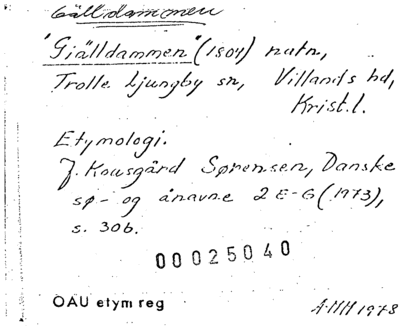 Gälldammen
"Giälldammen" (1504) natn,
Trolle Ljungby sn, Villands hd,
Krist.l.
Etymologi.
J. Kousgård Sørensen, Danske
sø- og ånavne 2 E-G (1973),
s. 306.
00025040
OAU etym reg
A-HH 1978